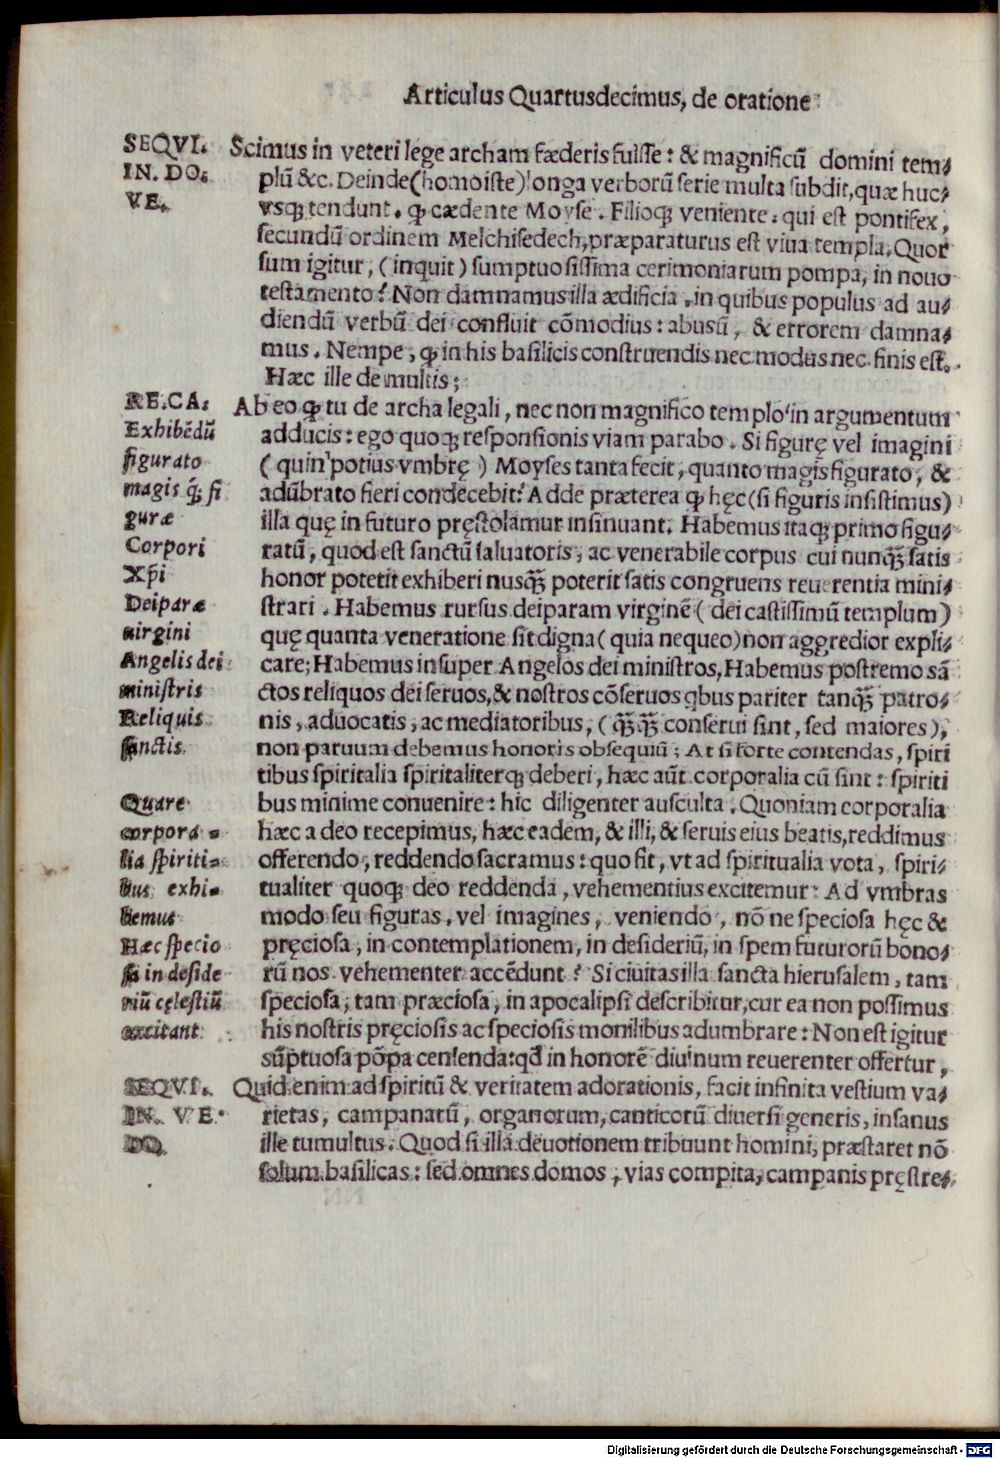 Articulus Quartusdecimus, de oratione
SEQVI.
IN. DO.
VE.
Scimus in veteri lege archam fæderis fuisse: & magnificũ domini tem⸗
plũ &c. Deinde (homo iste) longa verborũ serie multa subdit, quæ huc⸗
vsqꝫ tendunt. ꝙ cædente Moyse. Filioqꝫ veniente: qui est pontifex,
secundũ ordinem Melchisedech, præparaturus est viua templa. Quor
sum igitur, (inquit) sumptuosissima cerimoniarum pompa, in nouo
testamento? Non damnamus illa ædificia, in quibus populus ad au⸗
diendũ verbũ dei confluit cõmodius: abusũ, & errorem damna⸗
mus. Nempe, ꝙ in his basilicis construendis nec modus nec finis est.
Hæc ille de multis;
RE. CA:
Exhibẽdũ
figurato
magis q̃ꝫ fi
guræ
Corpori
Xp̃i
Deiparæ
uirgini
Angelis dei
ministris
Reliquis
sanctis.
Ab eo ꝙ tu de archa legali, nec non magnifico templo in argumentum
adducis: ego quoqꝫ responsionis viam parabo. Si figurę vel imagini
(quin potius vmbrę) Moyses tanta fecit, quanto magis figurato, &
adũbrato fieri condecebit? Adde præterea ꝙ hęc (si figuris insistimus)
illa quę in futuro pręstolamur insinuant. Habemus itaqꝫ primo figu⸗
ratũ, quod est sanctũ saluatoris, ac venerabile corpus cui nunq̃ꝫ satis
honor potetit exhiberi nusq̃ꝫ poterit satis congruens reuerentia mini⸗
strari. Habemus rursus deiparam virginẽ (dei castissimũ templum)
quę quanta veneratione sit digna (quia nequeo) non aggredior expli⸗
care; Habemus insuper Angelos dei ministros, Habemus postremo sã
ctos reliquos dei seruos, & nostros cõseruos qbus pariter tanq̃ꝫ patro⸗
nis, aduocatis, ac mediatoribus, (q̃ꝫq̃ꝫ conserui sint, sed maiores),
non paruum debemus honoris obsequiũ; At si forte contendas, spiri
tibus spiritalia spiritaliterqꝫ deberi, hæc aũt corporalia cũ sint: spiriti
Quare
corpora⸗
lia spiriti⸗
bus exhi⸗
bemus
Hæc specio
sa in deside
riũ cęlestiũ
excitant
bus minime conuenire: hic diligenter ausculta. Quoniam corporalia
hæc a deo recepimus, hæc eadem, & illi, & seruis eius beatis, reddimus
offerendo, reddendo sacramus: quo fit, vt ad spiritualia vota, spiri⸗
tualiter quoqꝫ deo reddenda, vehementius excitemur: Ad vmbras
modo seu figuras, vel imagines, veniendo, nõ ne speciosa hęc &
pręciosa, in contemplationem, in desideriũ, in spem futurorũ bono⸗
rũ nos vehementer accẽdunt? Si ciuitas illa sancta hierusalem, tam
speciosa, tam præciosa, in apocalipsi describitur, cur ea non possimus
his nostris pręciosis ac speciosis monilibus adumbrare: Non est igitur
sũptuosa põpa censenda: qđ in honorẽ diuinum reuerenter offertur,
SEQVI.
IN. VE.
DO.
Quid enim ad spiritũ & veritatem adorationis, facit infinita vestium va⸗
rietas, campanarũ, organorum, canticorũ diuersi generis, insanus
ille tumultus. Quod si illa deuotionem tribuunt homini, præstaret nõ
solum basilicas: sed omnes domos, vias compita, campanis pręstre⸗
Digitalisierung gefördert durch die Deutsche Forschungsgemeinschaft - DFG